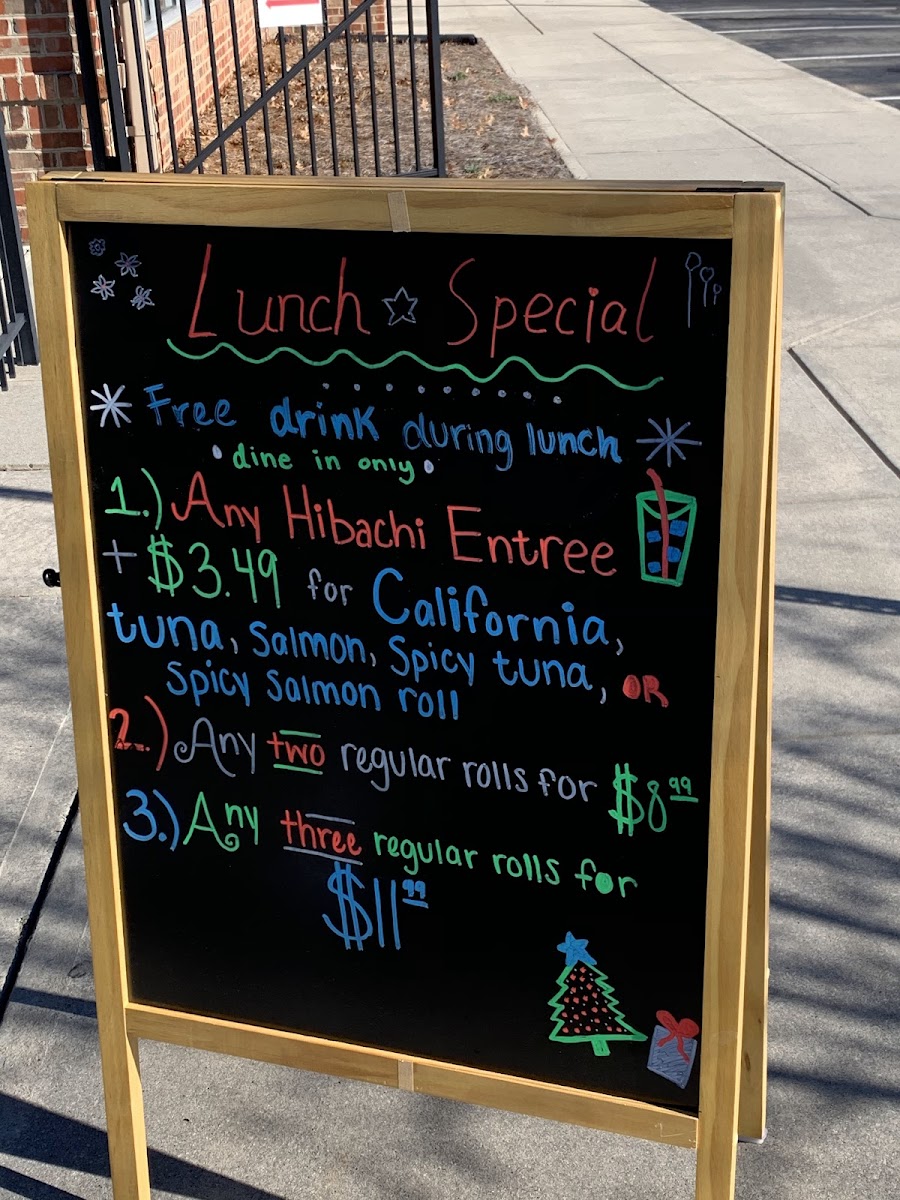 Lunch Special
Free drink during lunch
dine in only
1.) Any Hibachi Entree
+ $3.49 for California,
tuna, Salmon, Spicy tuna, OR
Spicy Salmon roll
2.) Any two regular rolls for $8.99
3.) Any three regular rolls for
$11.99